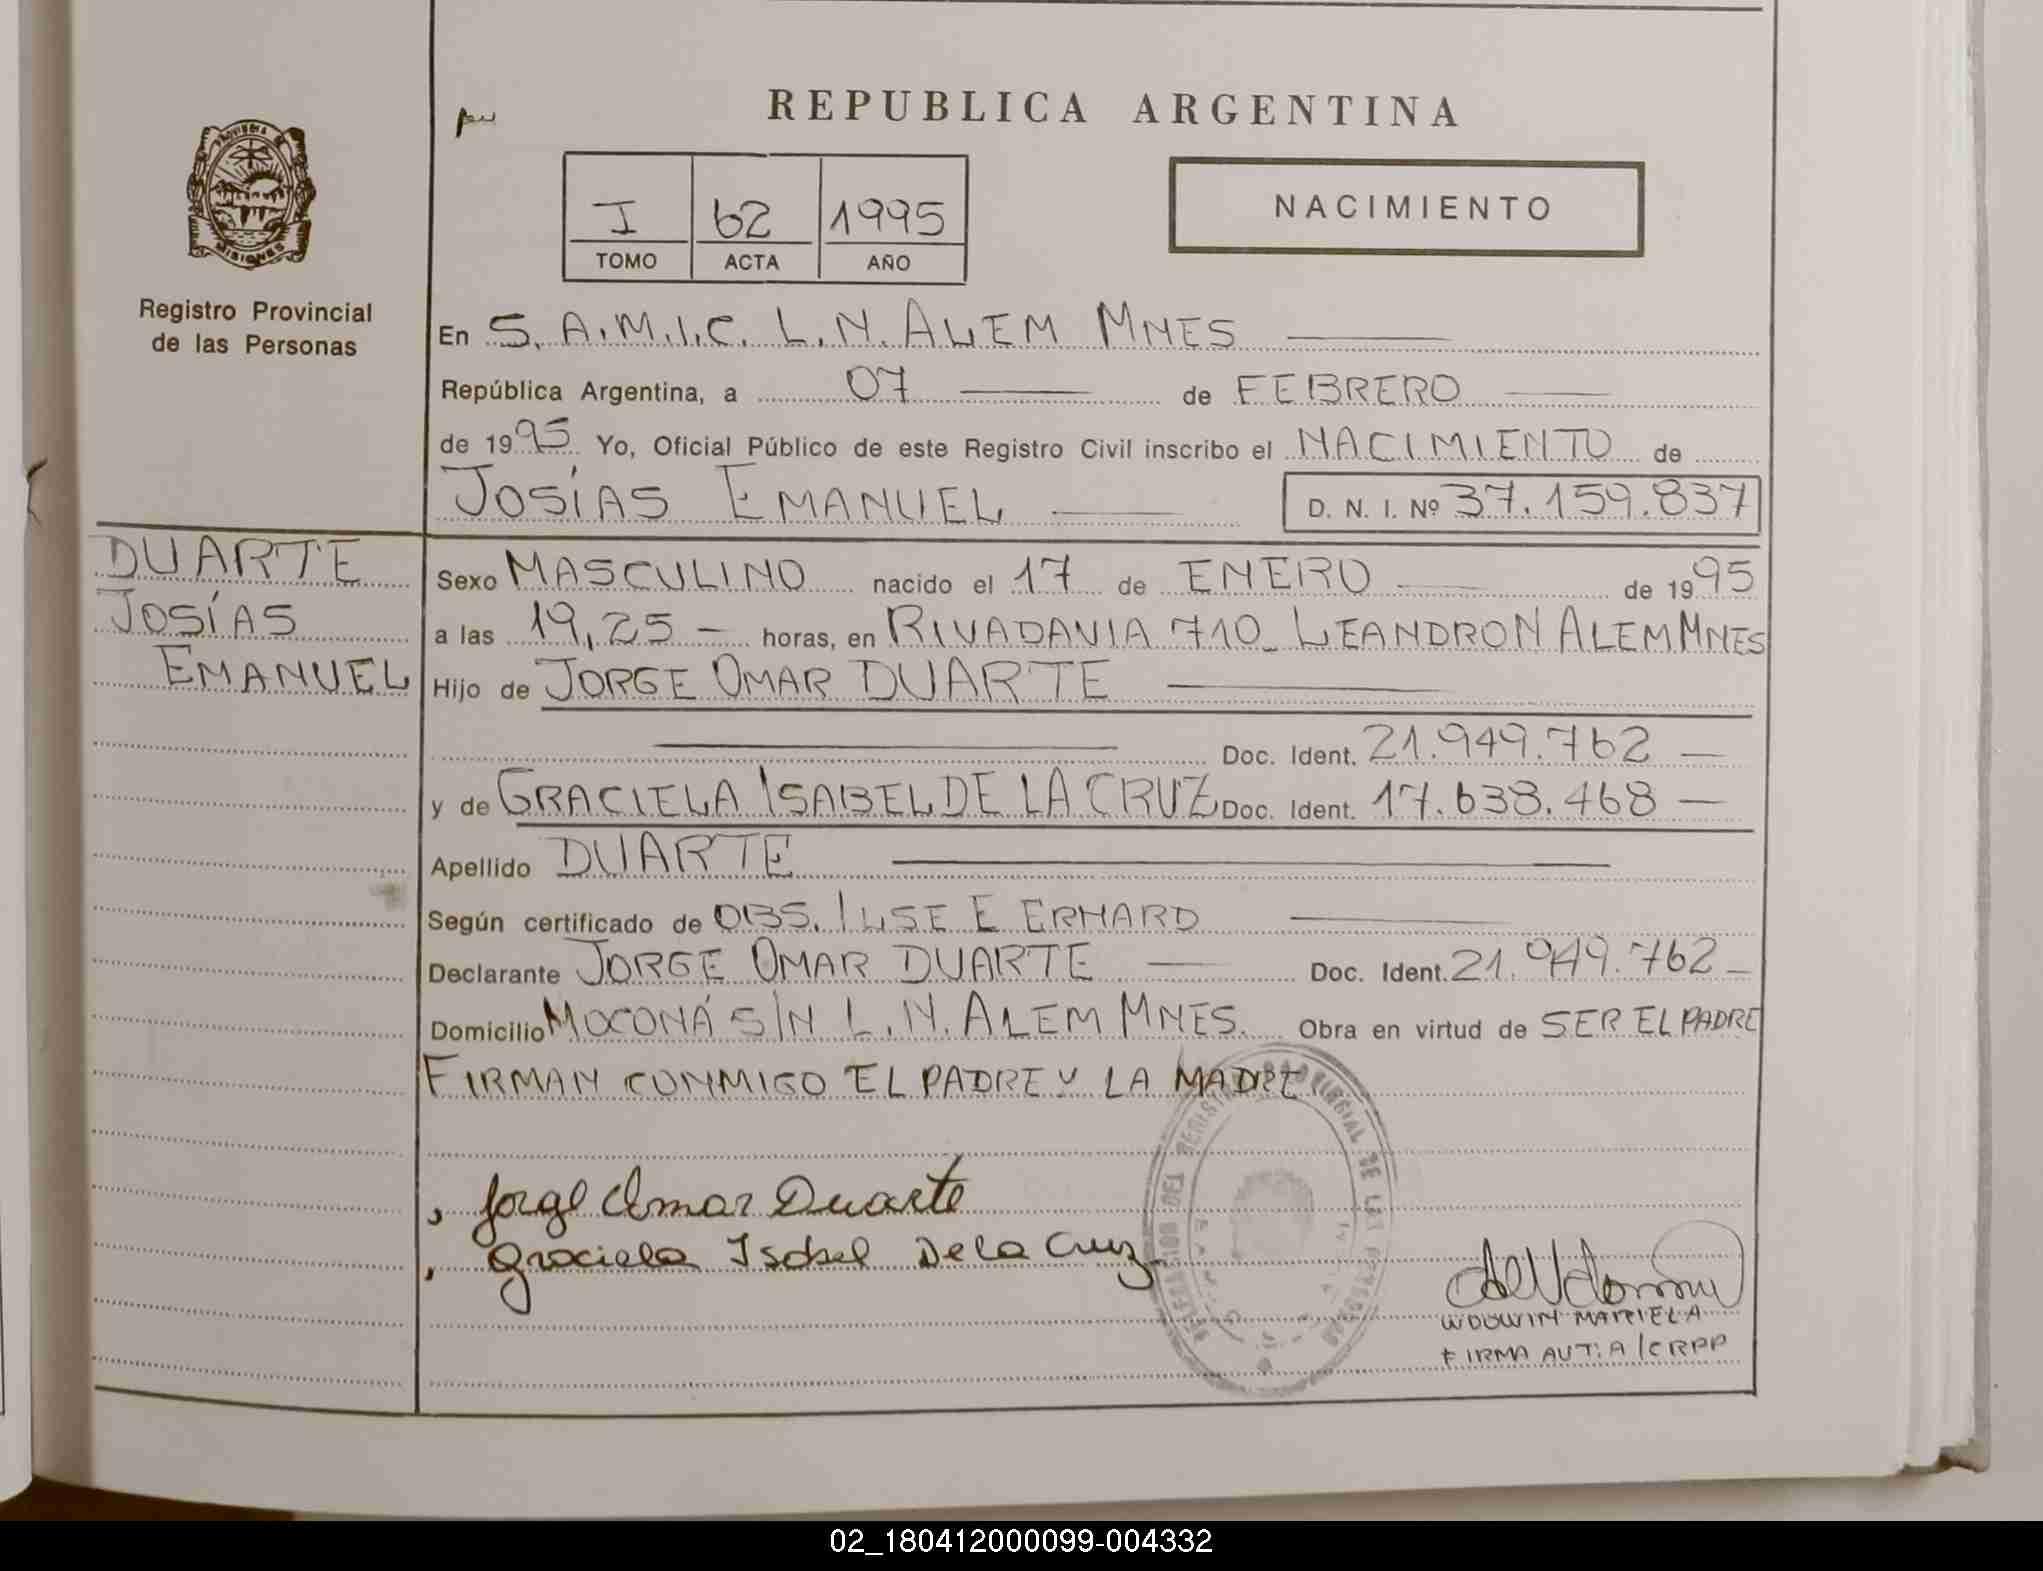 REPUBLICA ARGENTINA
PROVINCIA DE
MISIONES
Registro Provincial
de las Personas
I 62 1995
TOMO ACTA AÑO
NACIMIENTO
En S.A.M.I.C. L.N. ALEM MNES
República Argentina, a 07 de FEBRERO
de 1995 Yo, Oficial Público de este Registro Civil inscribo el NACIMIENTO de
JOSÍAS EMANUEL D. N. I. Nº 37.159.837
DUARTE
JOSÍAS
EMANUEL
Sexo MASCULINO nacido el 17 de ENERO de 1995
a las 19,25 - horas, en RIVADAVIA 710_ LEANDRO N ALEM MNES
Hijo de JORGE OMAR DUARTE
Doc. Ident. 21.949.762 —
y de GRACIELA ISABEL DE LA CRUZ Doc. Ident. 17.638.468 —
Apellido DUARTE
Según certificado de OBS. ILSE E ERHARD
Declarante JORGE OMAR DUARTE — Doc. Ident. 21.949.762 _
Domicilio MOCONÁ S/N L.N. ALEM MNES. Obra en virtud de SER EL PADRE
FIRMAN CONMIGO EL PADRE Y LA MADRE
Jorge Omar Duarte
Graciela Isabel De la Cruz
DELEGACION DEL REGISTRO PROVINCIAL DE LAS PERSONAS
MARIELA
FIRMA AUT: A/C RPP
02_180412000099-004332